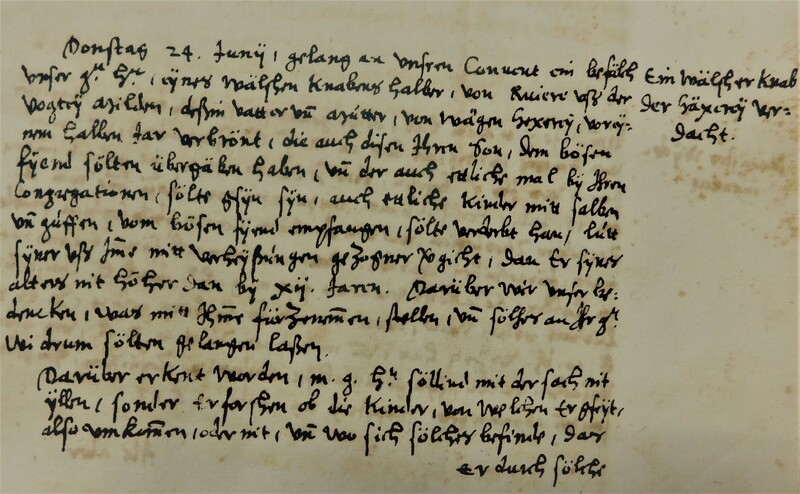 Donstag 24. Junij, gelang an unseren Convent ein befälch
unser g.n h.n, eynes wälschen knabens halber, von Ruiere uß der
vogtey Milden, deßin vatter und mutter, von wägen hexery, vorey-
nem halben Jar verbrönt, die auch disen Ihren Son, dem bösen
fyend sölten übergäben haben, und der auch ettliche mal by Ihren
Congregationen, sölte gsyn syn, auch ettliche kinder mitt salben
und güffen, vom bösen fyend empfangen, sölte verderbt han, lutt
syner uß Imme mitt verheyßungen gezogner vergicht, dan Er synes
alters nit höher dan by xij. Jaren. Darüber wir unser be-
dencken, was mitt Ihmme fürzenemmen, stellen, und sölches an Ihr g.n
widrum sölten gelangen laßen.
Darüber erkent worden, m. g. h.n söllind mit der sach nit
yllen, sonder Erforschen ob die kinder, von welchen Er gseyt,
also umkommen, oder nit, und wo sich sölches befinde, das
Er durch sölche
Ein wälscher knab
der häxery ver-
dacht.